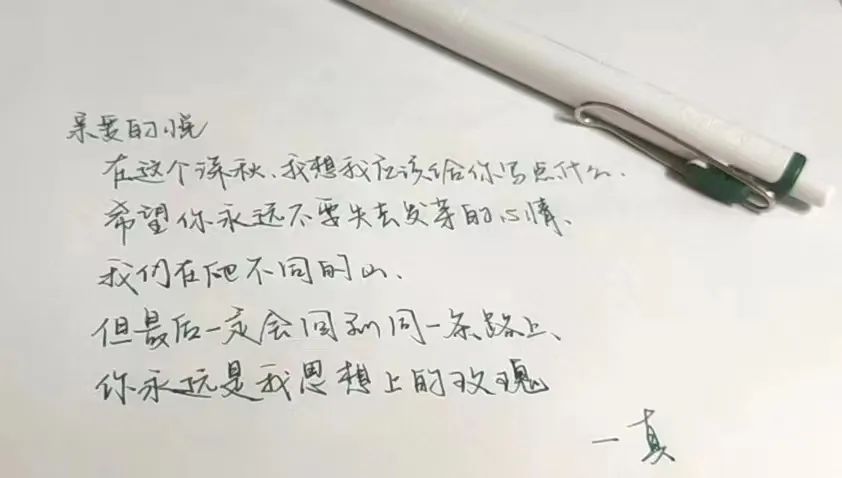 亲爱的悦
在这个深秋、我想我应该给你写点什么.
希望你永远不要失去发芽的心情、
我们在爬不同的山.
但最后一定会回到同一条路上、
你永远是我思想上的玫瑰
一真